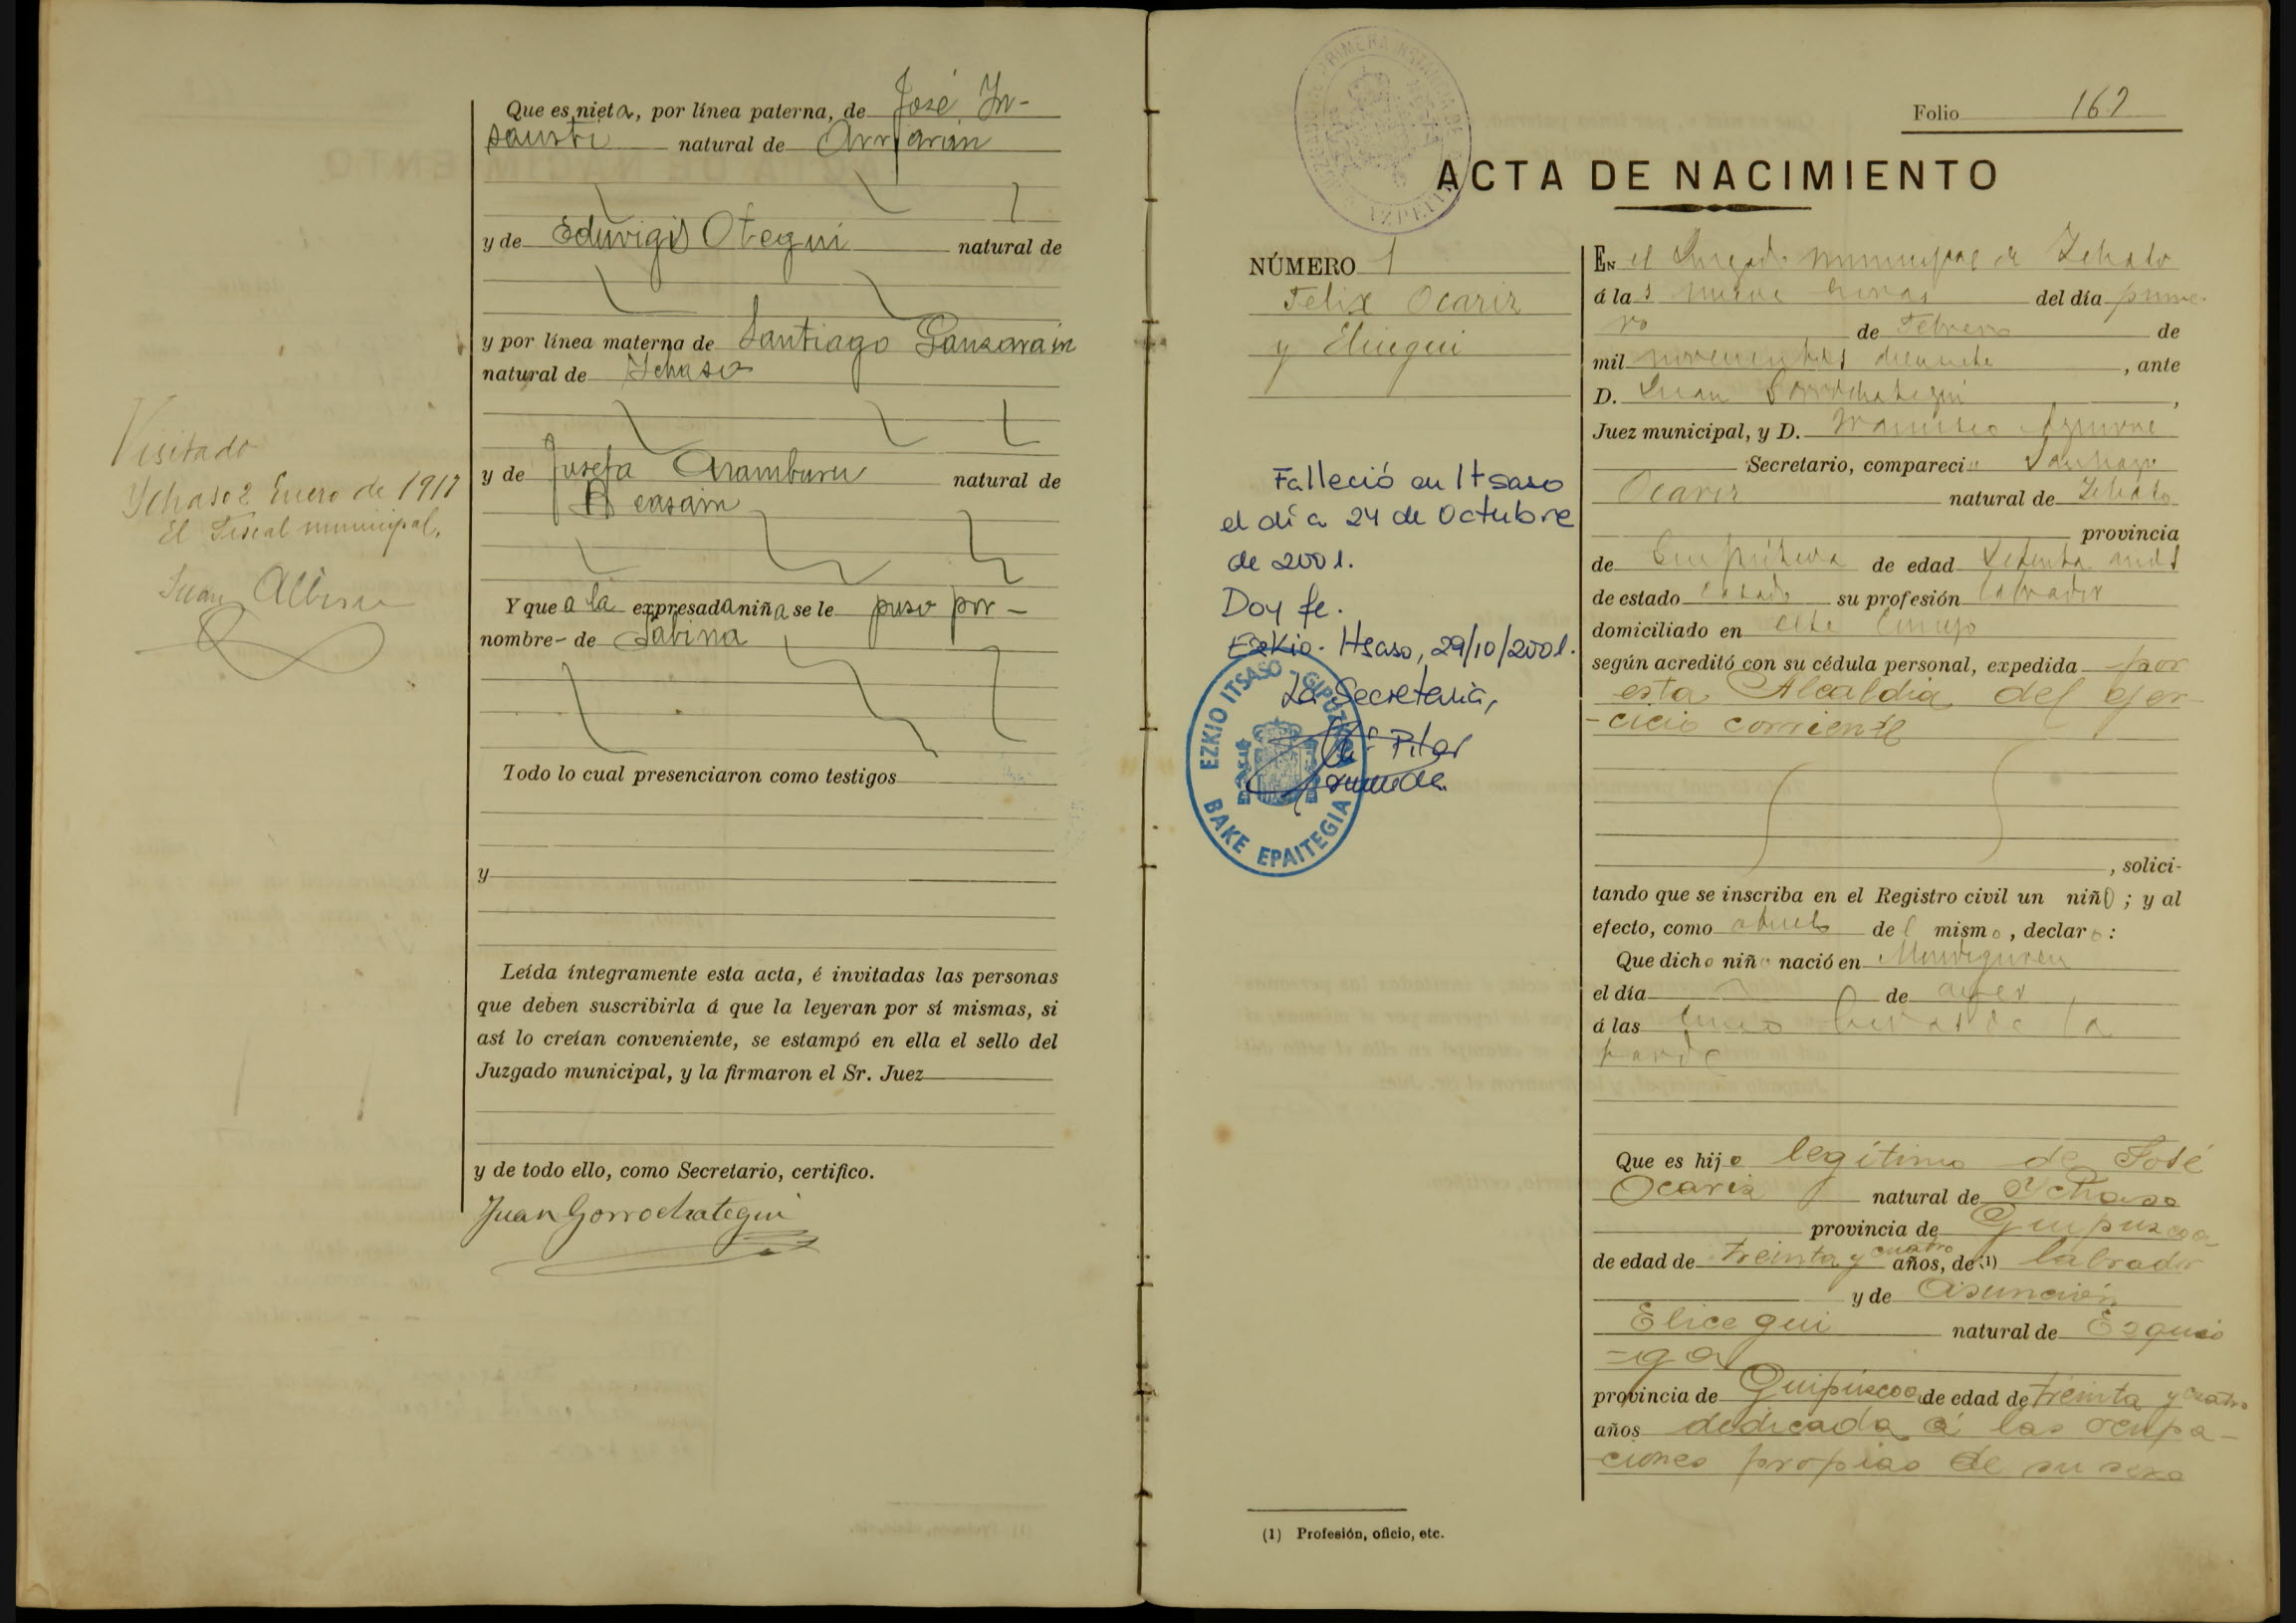 Que es nieta, por línea paterna, de José In-
sausti natural de Arriarán
y de Eduvigis Otegui natural de
y por línea materna de Santiago Ganzarain
natural de Ichaso
y de Josefa Aramburu natural de
Beasain
Y que a la expresada niña se le puso por -
nombre - de Sabina
Todo lo cual presenciaron como testigos
y
Leída íntegramente esta acta, é invitadas las personas
que deben suscribirla á que la leyeran por sí mismas, si
así lo creían conveniente, se estampó en ella el sello del
Juzgado municipal, y la firmaron el Sr. Juez
y de todo ello, como Secretario, certifico.
Juan Gorrochategui
Visitado
Ychaso 2 Enero de 1917
El Fiscal municipal,
Juan Albisu
Folio 162
ACTA DE NACIMIENTO
NÚMERO 1
Felix Ocariz
y Elicegui
Falleció en Itsaso
el día 24 de Octubre
de 2001.
Doy fe.
Ezkio-Itsaso, 29/10/2001.
La Secretaria,
Mª Pilar
EZKIO ITSASO - GIPUZKOA
BAKE EPAITEGIA
EN el Juzgado municipal de Ichaso
á las nueve horas del día prime-
ro de Febrero de
mil novecientos diecisiete, ante
D. Juan Gorrochategui,
Juez municipal, y D. Francisco Aguirre
Secretario, compareció Santiago
Ocariz natural de Ichaso
provincia
de Guipúzcoa de edad setenta años
de estado casado su profesión labrador
domiciliado en este
según acreditó con su cédula personal, expedida por
esta Alcaldia del ejer-
-cicio corriente
, solici-
tando que se inscriba en el Registro civil un niño; y al
efecto, como abuelo del mismo, declaró:
Que dicho niño nació en
el día de ayer
á las cinco horas de la
tarde
Que es hijo legítimo de José
Ocariz natural de Ychaso
provincia de Guipuzcoa
de edad de treinta y cuatro años, de (1) labrador
y de Asunción
Elicegui natural de Ezquio
-ga
provincia de Guipúzcoa de edad de treinta y cuatro
años dedicada á las ocupa-
-ciones propias de su sexo
(1) Profesión, oficio, etc.